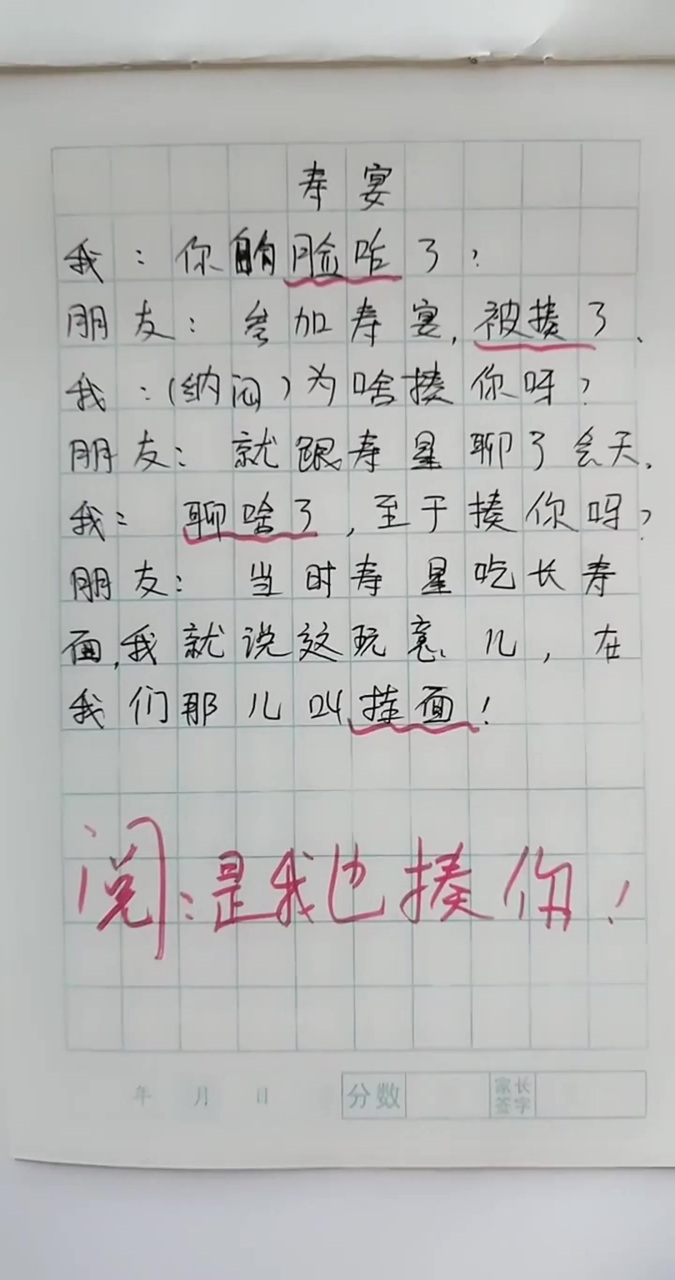 寿宴
我：你的脸咋了？
朋友：参加寿宴，被揍了、
我：（纳闷）为啥揍你呀？
朋友：就跟寿星聊了会天。
我：聊啥了，至于揍你呀？
朋友：当时寿星吃长寿
面，我就说这玩意儿，在
我们那儿叫挂面！
阅：是我也揍你！
年 月 日 分数 家长签字